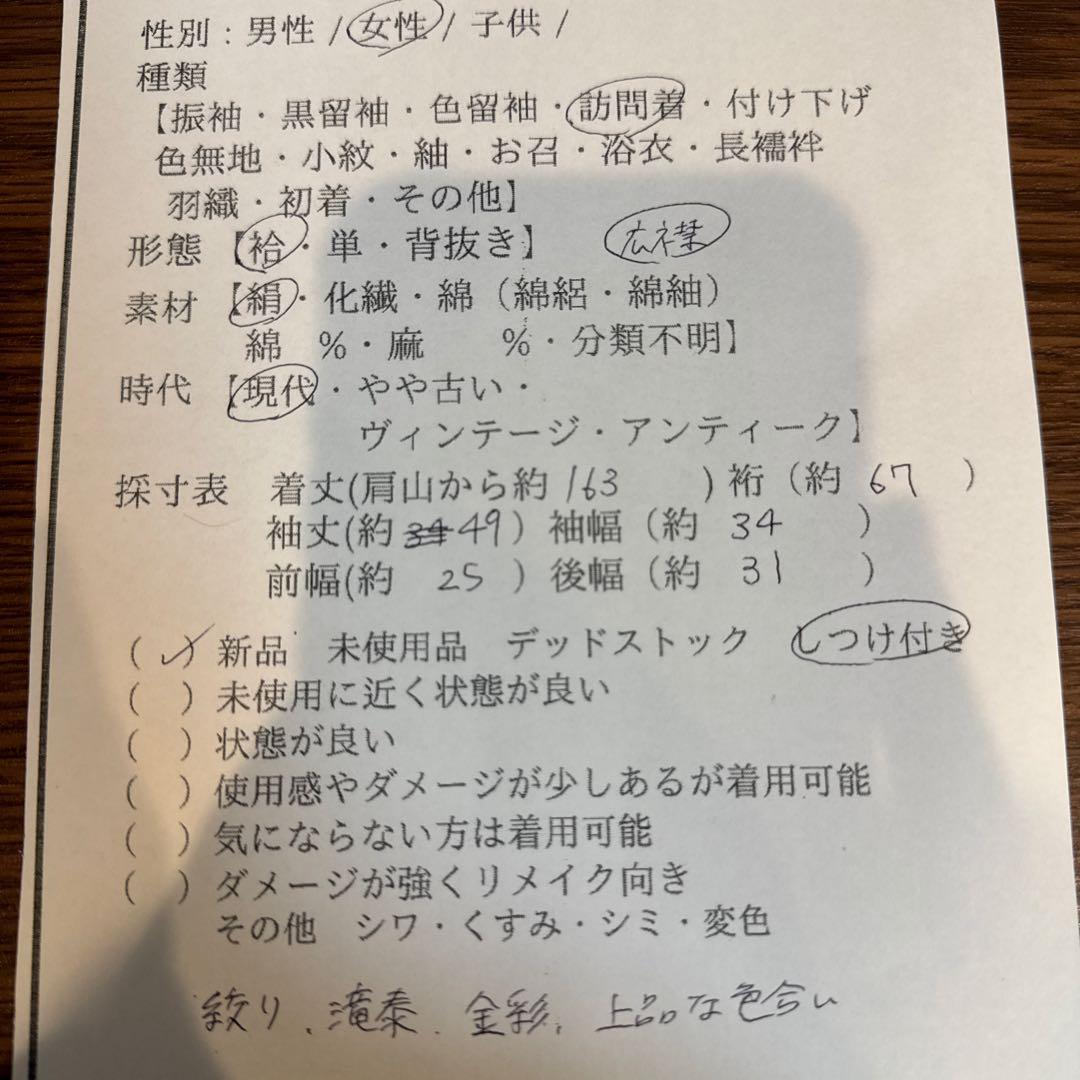 性別：男性 / 女性 / 子供 /
種類
【振袖・黒留袖・色留袖・訪問着・付け下げ
色無地・小紋・紬・お召・浴衣・長襦袢
羽織・初着・その他】
形態【袷・単・背抜き】 広衿
素材【絹・化繊・綿（綿絽・綿紬）
綿 %・麻 %・分類不明】
時代【現代・やや古い・
ヴィンテージ・アンティーク】
採寸表 着丈(肩山から約 163 ) 裄（約 67 ）
袖丈(約 49 ）袖幅（約 34 ）
前幅(約 25 ）後幅（約 31 ）
( ✓ ) 新品 未使用品 デッドストック しつけ付き
( ) 未使用に近く状態が良い
( ) 状態が良い
( ) 使用感やダメージが少しあるが着用可能
( ) 気にならない方は着用可能
( ) ダメージが強くリメイク向き
その他 シワ・くすみ・シミ・変色
絞り、滝泰、金彩、上品な色合い